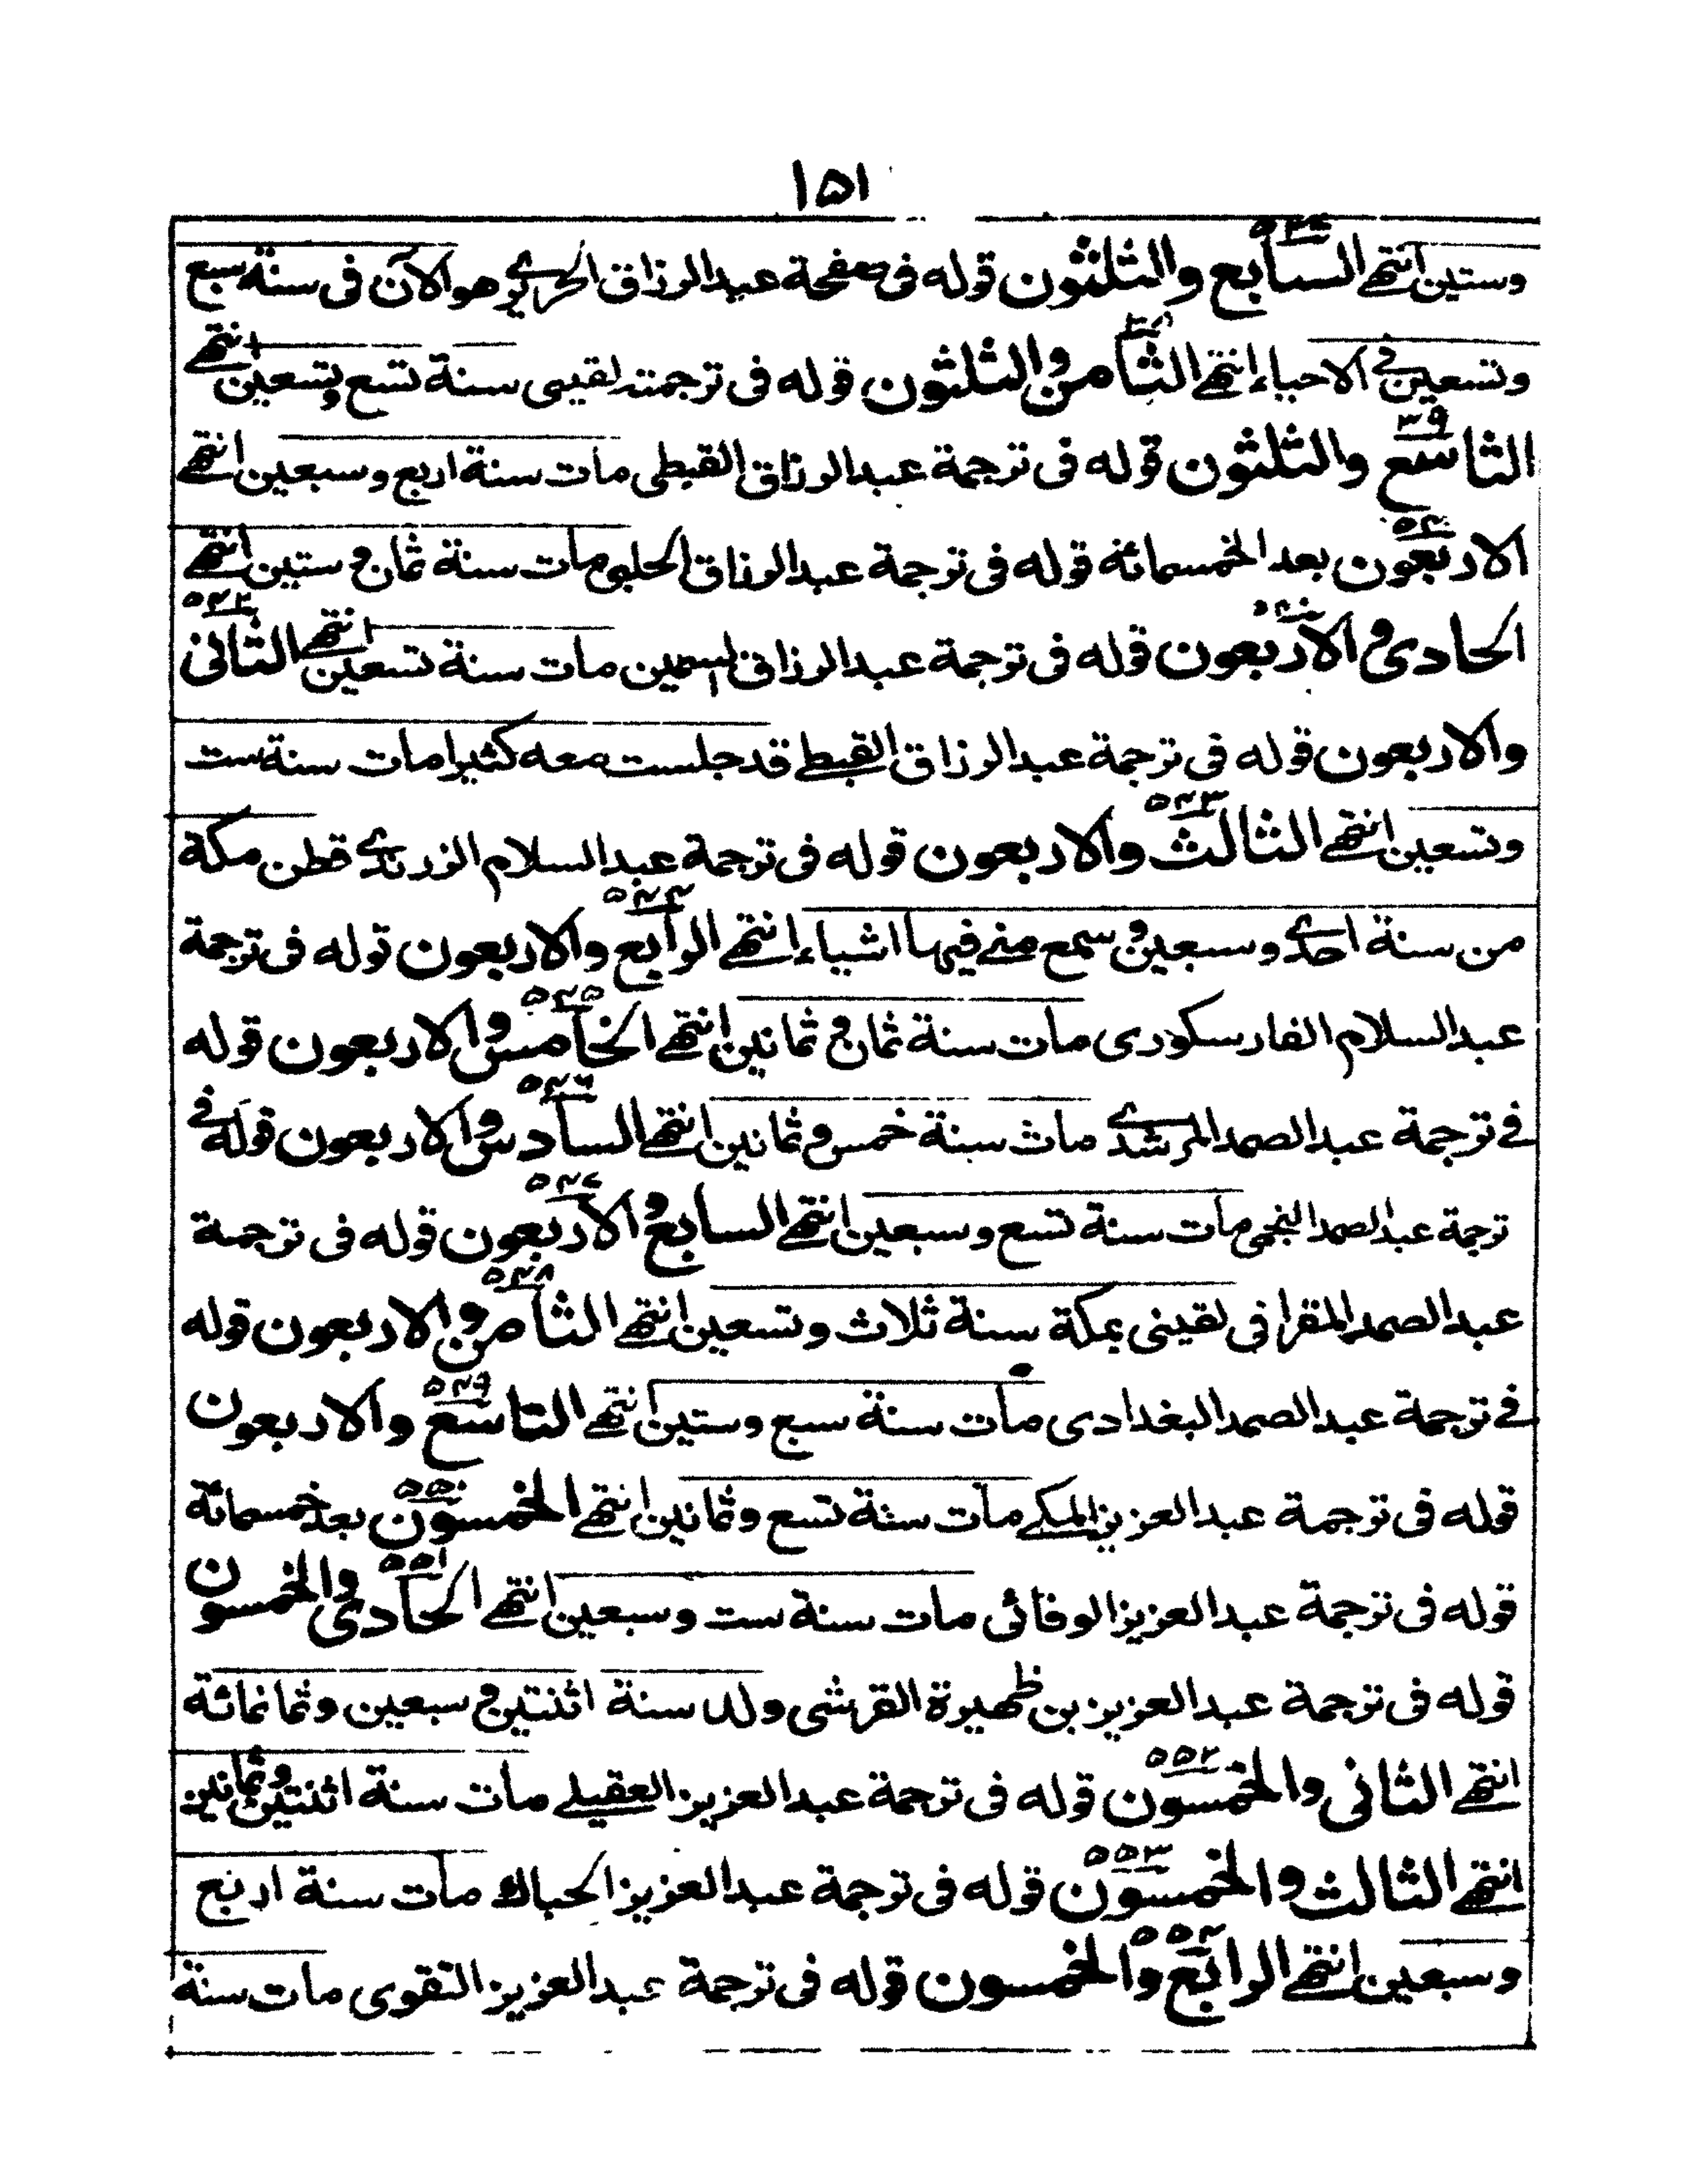 ١٥١
وستين انتهى السابع والثلثون قوله فى صفحة عبد الرزاق الحريرى هو الآن فى سنة سبع
وتسعين فى الاحياء انتهى الثامن والثلثون قوله فى ترجمته لقينى سنة تسع وتسعين انتهى
التاسع والثلثون قوله فى ترجمة عبد الرزاق القبطى مات سنة اربع وسبعين انتهى
الاربعون بعد الخمسمائة قوله فى ترجمة عبد الرزاق الحلبى مات سنة ثمان وستين انتهى
الحادى والاربعون قوله فى ترجمة عبد الرزاق السمين مات سنة تسعين انتهى الثانى ٥٤٢
والاربعون قوله فى ترجمة عبد الرزاق القبطى قد جلست معه كثيرا مات سنة ست
وتسعين انتهى الثالث ٥٤٣ والاربعون قوله فى ترجمة عبد السلام الزرندى قطن مكة
من سنة احدى وسبعين وسمع منى فيها اشياء انتهى الرابع ٥٤٤ والاربعون قوله فى ترجمة
عبد السلام الفارسكورى مات سنة ثمان وثمانين انتهى الخامس ٥٤٥ والاربعون قوله
فى ترجمة عبد الصمد المرشدى مات سنة خمس وثمانين انتهى السادس ٥٤٦ والاربعون قوله فى
ترجمة عبد الصمد النجمى مات سنة تسع وسبعين انتهى السابع والاربعون ٥٤٧ قوله فى ترجمة
عبد الصمد المقرانى لقينى بمكة سنة ثلاث وتسعين انتهى الثامن ٥٤٨ والاربعون قوله
فى ترجمة عبد الصمد البغدادى مات سنة سبع وستين انتهى التاسع ٥٤٩ والاربعون
قوله فى ترجمة عبد العزيز المكى مات سنة تسع وثمانين انتهى الخمسون ٥٥٠ بعد خمسمائة
قوله فى ترجمة عبد العزيز الوفائى مات سنة ست وسبعين انتهى الحادى ٥٥١ والخمسون
قوله فى ترجمة عبد العزيز بن ظهيرة القرشى ولد سنة اثنتين وسبعين وثمانمائة
انتهى الثانى والخمسون ٥٥٢ قوله فى ترجمة عبد العزيز العقيلى مات سنة اثنتين وثمانين
انتهى الثالث والخمسون ٥٥٣ قوله فى ترجمة عبد العزيز الحباك مات سنة اربع
وسبعين انتهى الرابع ٥٥٤ والخمسون قوله فى ترجمة عبد العزيز التقوى مات سنة